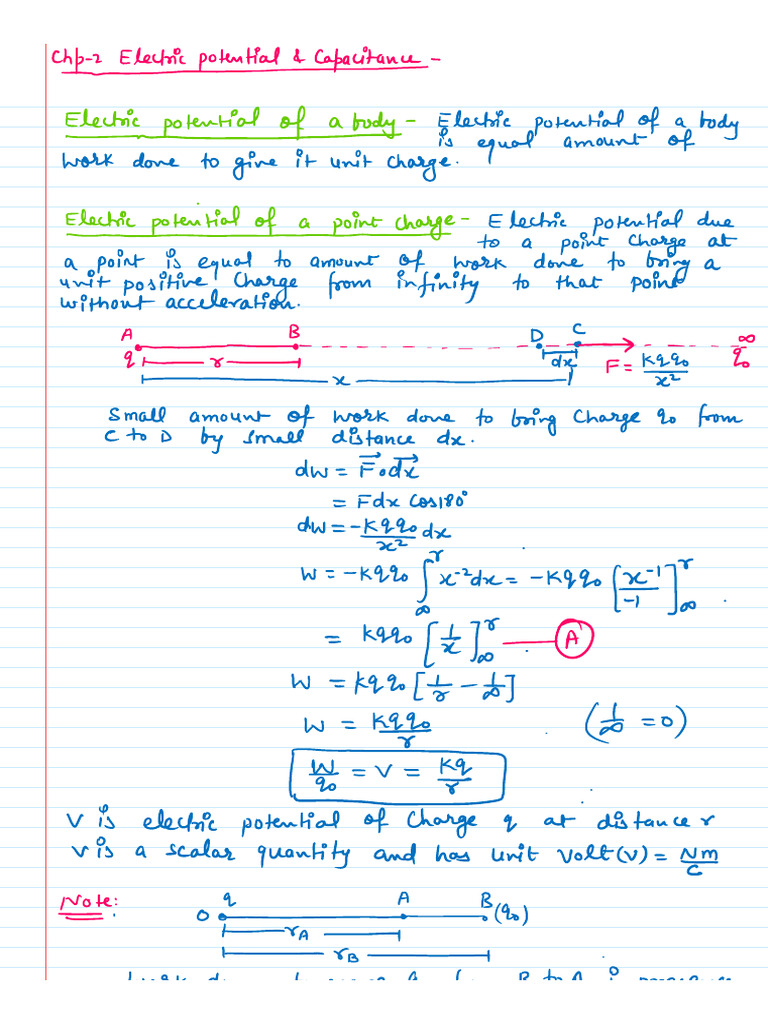 Chp-2 Electric potential & Capacitance -
Electric potential of a body - Electric potential of a body
is equal amount of
work done to give it unit charge.
Electric potential of a point charge - Electric potential due
to a point charge at
a point is equal to amount of work done to bring a
unit positive charge from infinity to that point
without acceleration.
A B D C ∞
q r dx F = Kqq₀/x² q₀
x
Small amount of work done to bring charge q₀ from
C to D by small distance dx.
dW = F⃗.dx⃗
= Fdx cos180°
dW = -Kqq₀/x² dx
W = -Kqq₀ ∫_∞^r x⁻²dx = -Kqq₀ [x⁻¹/-1]_∞^r
= Kqq₀ [1/x]_∞^r — A
W = Kqq₀ [1/r - 1/∞]
W = Kqq₀/r (1/∞ = 0)
W/q₀ = V = Kq/r
V is electric potential of charge q at distance r
V is a scalar quantity and has unit volt(V) = Nm/C
Note: q A B
O (q₀)
r_A
r_B